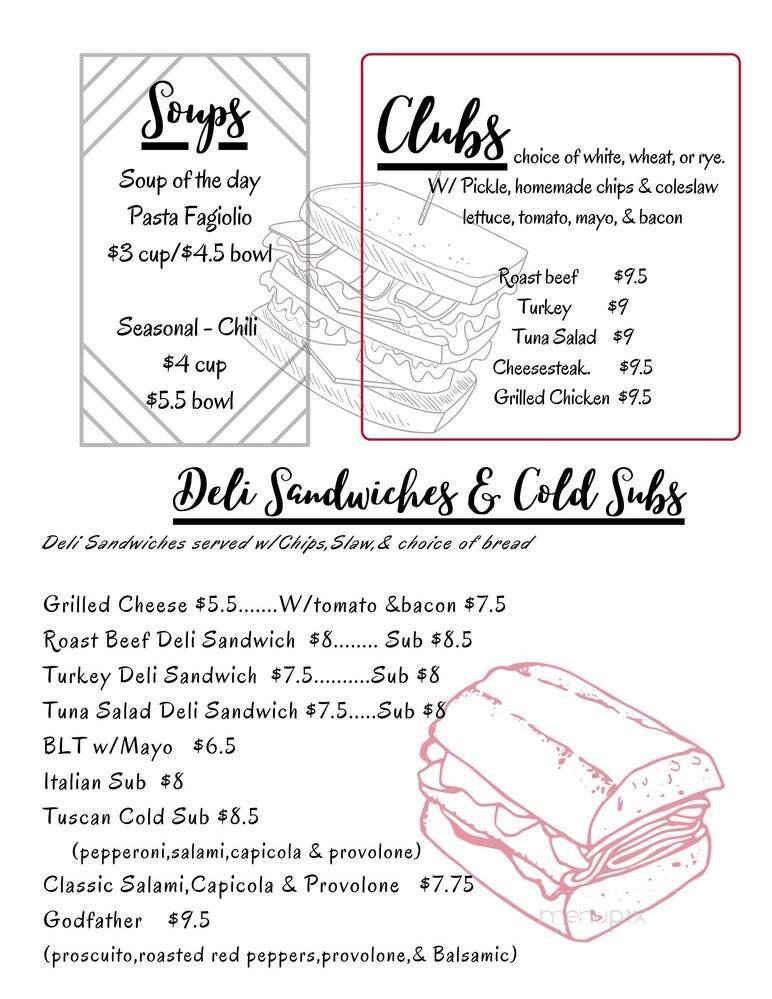 Soups
Soup of the day
Pasta Fagiolio
$3 cup/$4.5 bowl
Seasonal - Chili
$4 cup
$5.5 bowl
Clubs choice of white, wheat, or rye.
W/ Pickle, homemade chips & coleslaw
lettuce, tomato, mayo, & bacon
Roast beef $9.5
Turkey $9
Tuna Salad $9
Cheesesteak. $9.5
Grilled Chicken $9.5
Deli Sandwiches & Cold Subs
Deli Sandwiches served w/Chips,Slaw,& choice of bread
Grilled Cheese $5.5.......W/tomato &bacon $7.5
Roast Beef Deli Sandwich $8........ Sub $8.5
Turkey Deli Sandwich $7.5..........Sub $8
Tuna Salad Deli Sandwich $7.5.....Sub $8
BLT w/Mayo $6.5
Italian Sub $8
Tuscan Cold Sub $8.5
(pepperoni,salami,capicola & provolone)
Classic Salami,Capicola & Provolone $7.75
Godfather $9.5
(proscuito,roasted red peppers,provolone,& Balsamic)
menupix